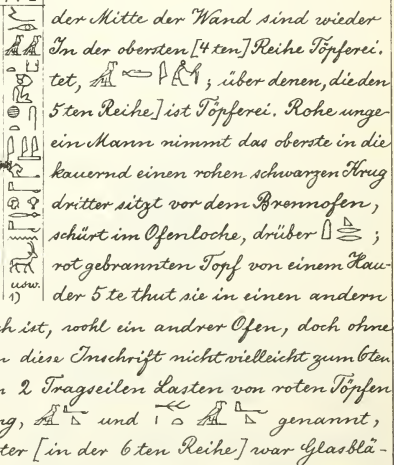 der Mitte der Wand sind wieder
In der obersten [4ten] Reihe Töpferei.
tet, ; über denen, die den
5ten Reihe] ist Töpferei. Rohe unge-
ein Mann nimmt das oberste in die
kauernd einen rohen schwarzen Krug
dritter sitzt vor dem Brennofen,
schürt im Ofenloche, drüber ;
rot gebrannten Topf von einem Hau-
usw.
der 5te thut sie in einen andern
1)
h ist, wohl ein andrer Ofen, doch ohne
n diese Inschrift nicht vielleicht zum 6ten
n 2 Tragseilen Lasten von roten Töpfen
g, und genannt,
ter [in der 6ten Reihe] war Glasblä-